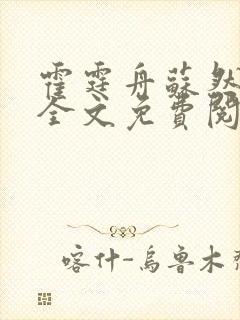 霍霆舟蘇然
全文免費閱
喀什-烏魯木齊